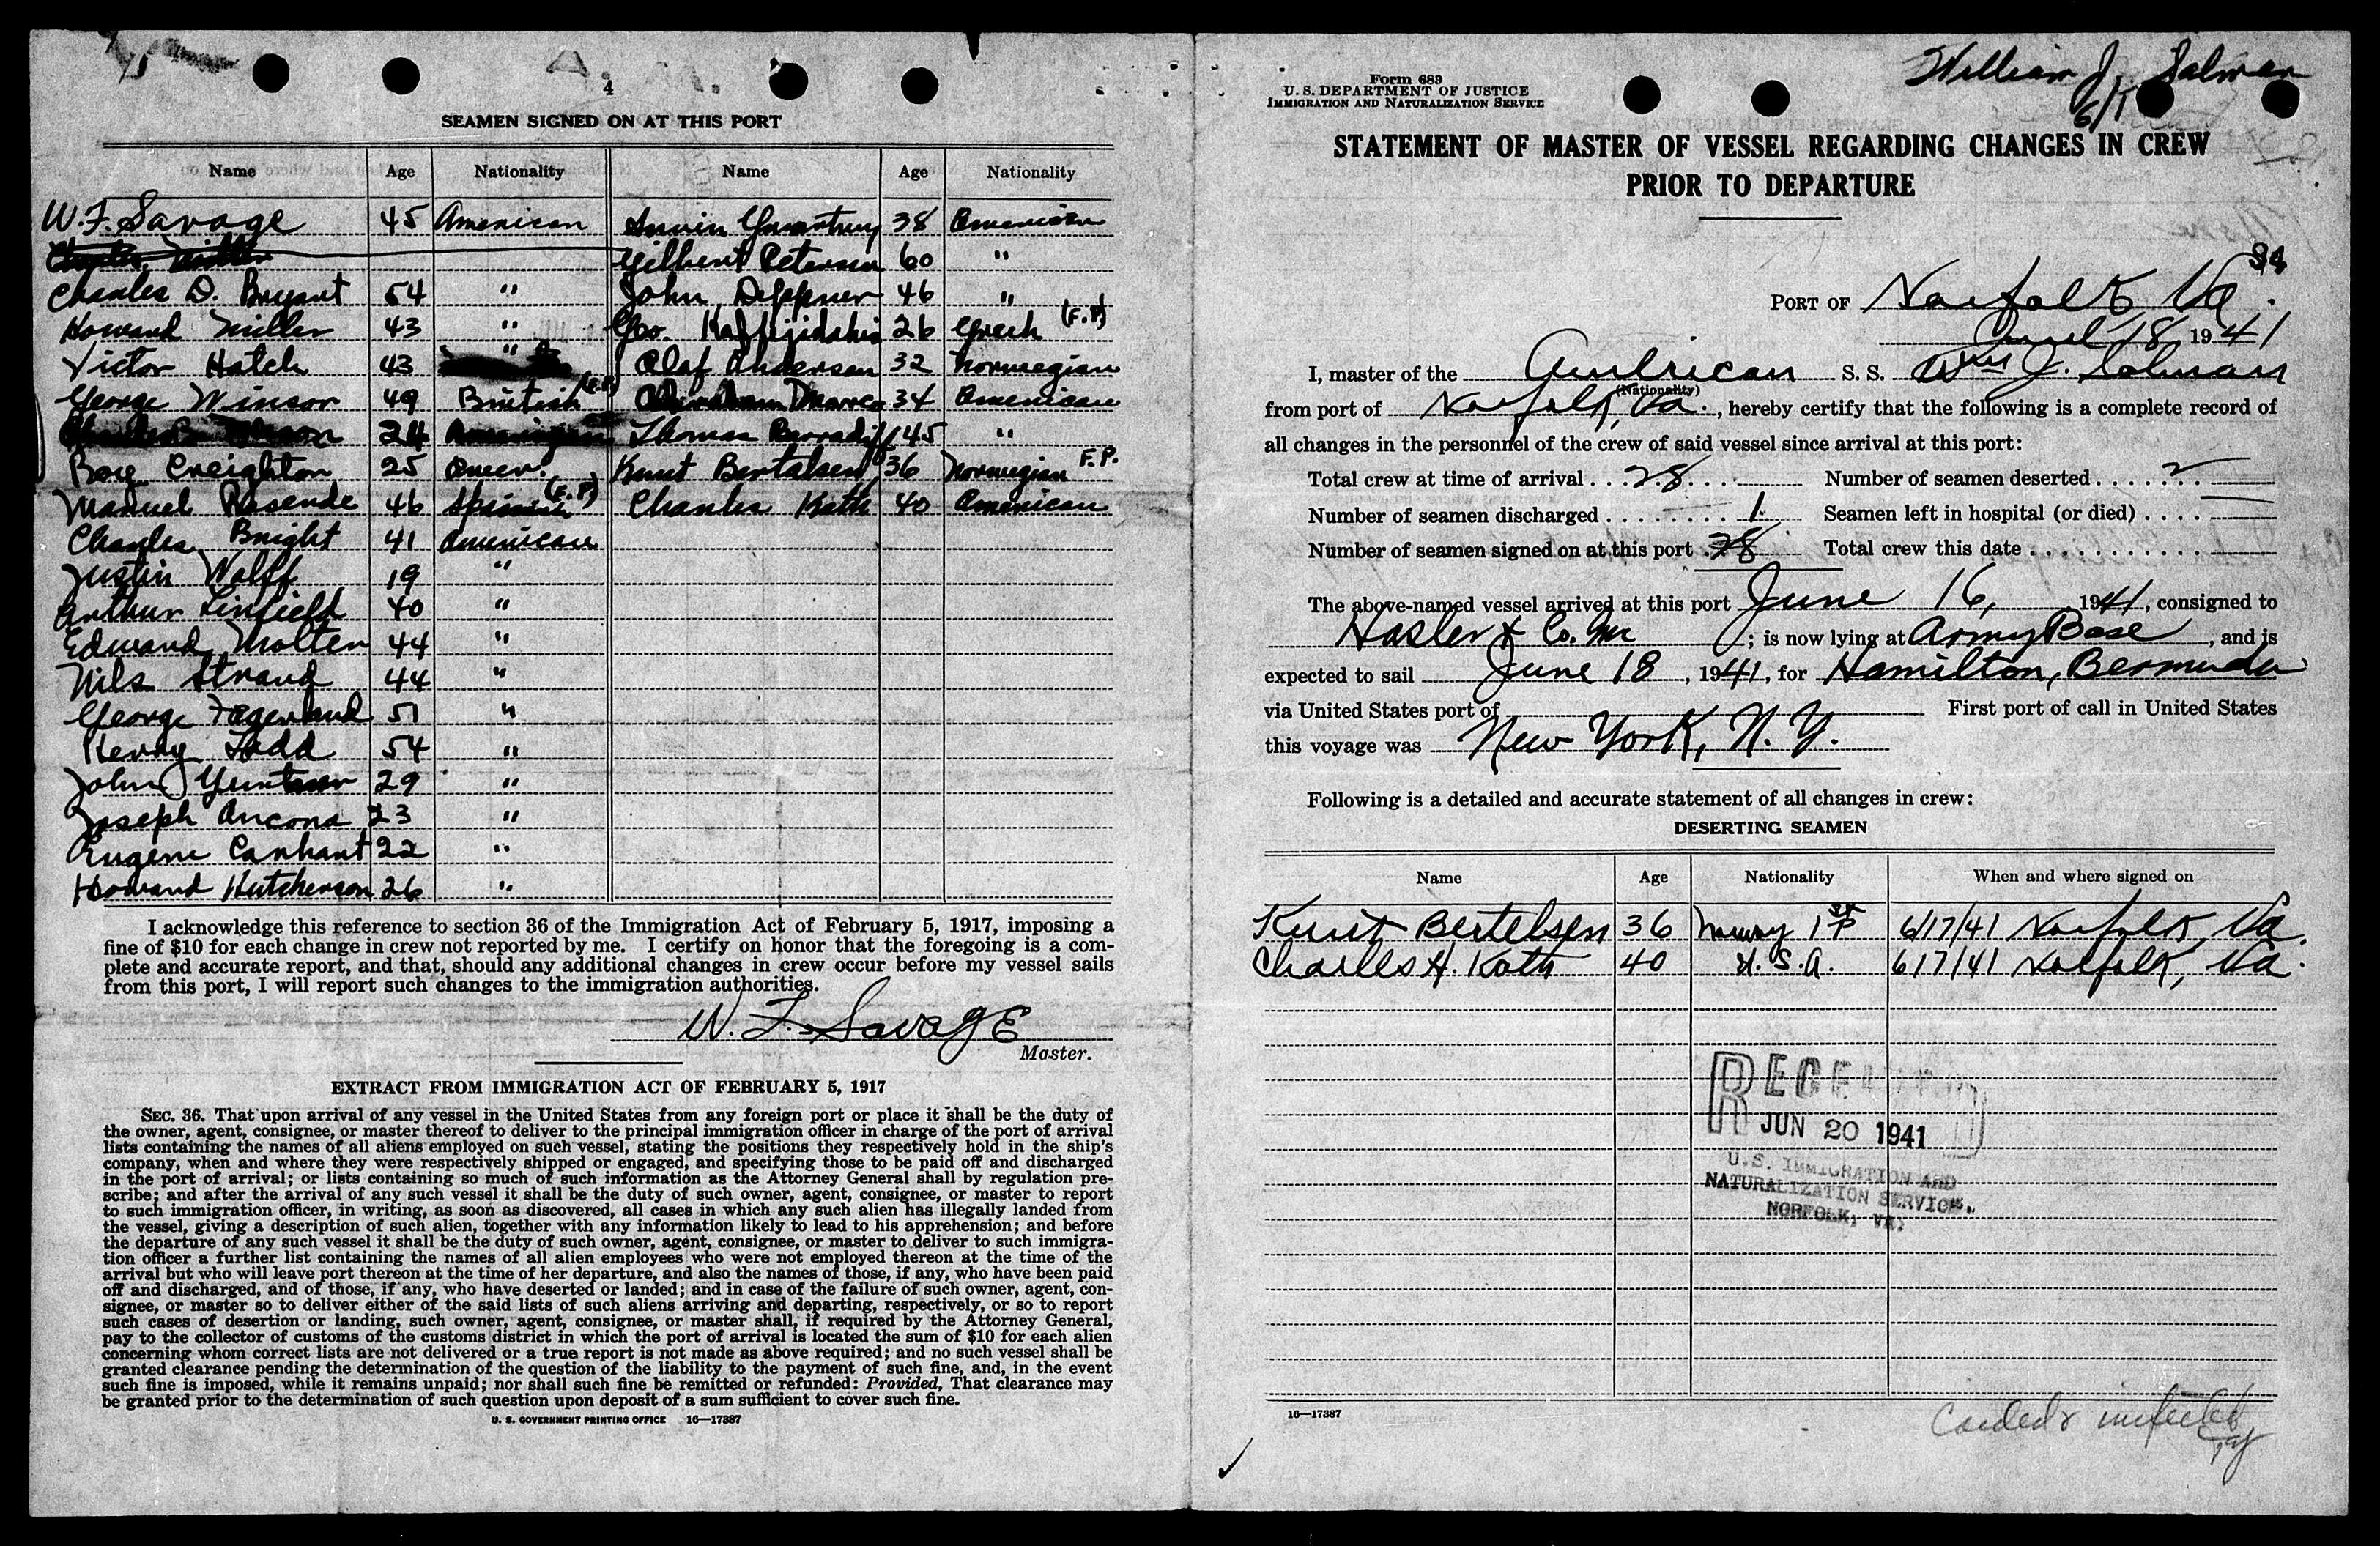 4
SEAMEN SIGNED ON AT THIS PORT
Name Age Nationality Name Age Nationality
W. F. Savage 45 American 38 American
Gilbert Petersen 60 "
Charles D. Bryant 54 " John Deppner 46 "
Howard Miller 43 " Geo. 26 Greek (F.P)
Victor Hatch 43 " Olaf Andersen 32 Norwegian
George Winsor 49 British (F.P) Marco 34 American
24 Thomas 45 "
Roy Creighton 25 Amer. Kurt Bertelsen 36 Norwegian F.P.
Manuel Rosende 46 Spanish (F.P) Charles Kath 40 American
Charles Bright 41 American
Justin Wolff 19 "
Arthur Linfield 40 "
Edward Molten 44 "
Nils Strand 44 "
George Fagerland 51 "
Henry Todd 54 "
John 29 "
Joseph Ancona 23 "
Eugene Canhant 22 "
Howard Hutcherson 26 "
I acknowledge this reference to section 36 of the Immigration Act of February 5, 1917, imposing a
fine of $10 for each change in crew not reported by me. I certify on honor that the foregoing is a com-
plete and accurate report, and that, should any additional changes in crew occur before my vessel sails
from this port, I will report such changes to the immigration authorities.
W. F. Savage
Master.
EXTRACT FROM IMMIGRATION ACT OF FEBRUARY 5, 1917
SEC. 36. That upon arrival of any vessel in the United States from any foreign port or place it shall be the duty of
the owner, agent, consignee, or master thereof to deliver to the principal immigration officer in charge of the port of arrival
lists containing the names of all aliens employed on such vessel, stating the positions they respectively hold in the ship's
company, when and where they were respectively shipped or engaged, and specifying those to be paid off and discharged
in the port of arrival; or lists containing so much of such information as the Attorney General shall by regulation pre-
scribe; and after the arrival of any such vessel it shall be the duty of such owner, agent, consignee, or master to report
to such immigration officer, in writing, as soon as discovered, all cases in which any such alien has illegally landed from
the vessel, giving a description of such alien, together with any information likely to lead to his apprehension; and before
the departure of any such vessel it shall be the duty of such owner, agent, consignee, or master to deliver to such immigra-
tion officer a further list containing the names of all alien employees who were not employed thereon at the time of the
arrival but who will leave port thereon at the time of her departure, and also the names of those, if any, who have been paid
off and discharged, and of those, if any, who have deserted or landed; and in case of the failure of such owner, agent, con-
signee, or master so to deliver either of the said lists of such aliens arriving and departing, respectively, or so to report
such cases of desertion or landing, such owner, agent, consignee, or master shall, if required by the Attorney General,
pay to the collector of customs of the customs district in which the port of arrival is located the sum of $10 for each alien
concerning whom correct lists are not delivered or a true report is not made as above required; and no such vessel shall be
granted clearance pending the determination of the question of the liability to the payment of such fine, and, in the event
such fine is imposed, while it remains unpaid; nor shall such fine be remitted or refunded: Provided, That clearance may
be granted prior to the determination of such question upon deposit of a sum sufficient to cover such fine.
U. S. GOVERNMENT PRINTING OFFICE 16—17387
William J. Salman
Form 689
U. S. DEPARTMENT OF JUSTICE
IMMIGRATION AND NATURALIZATION SERVICE
STATEMENT OF MASTER OF VESSEL REGARDING CHANGES IN CREW
PRIOR TO DEPARTURE
PORT OF Norfolk Va.
18 1941
I, master of the American S. S. Wm J. Salman
(Nationality)
from port of Norfolk, Va., hereby certify that the following is a complete record of
all changes in the personnel of the crew of said vessel since arrival at this port:
Total crew at time of arrival . . 28 . . . Number of seamen deserted . . . . 2
Number of seamen discharged . . . . . . . . 1. Seamen left in hospital (or died) . . . .
Number of seamen signed on at this port . 28 Total crew this date . . . . . . . . . . .
The above-named vessel arrived at this port June 16, 1941, consigned to
Hasler & Co. ; is now lying at Army Base, and is
expected to sail June 18, 1941, for Hamilton, Bermuda
via United States port of First port of call in United States
this voyage was New York, N. Y.
Following is a detailed and accurate statement of all changes in crew:
DESERTING SEAMEN
Name Age Nationality When and where signed on
Kurt Bertelsen 36 Norway 6/17/41 Norfolk, Va.
Charles H. Kath 40 U.S.A. 6/17/41 Norfolk, Va.
RECEIVED
JUN 20 1941
U.S. IMMIGRATION AND
NATURALIZATION SERVICE.
NORFOLK, VA.
16—17387